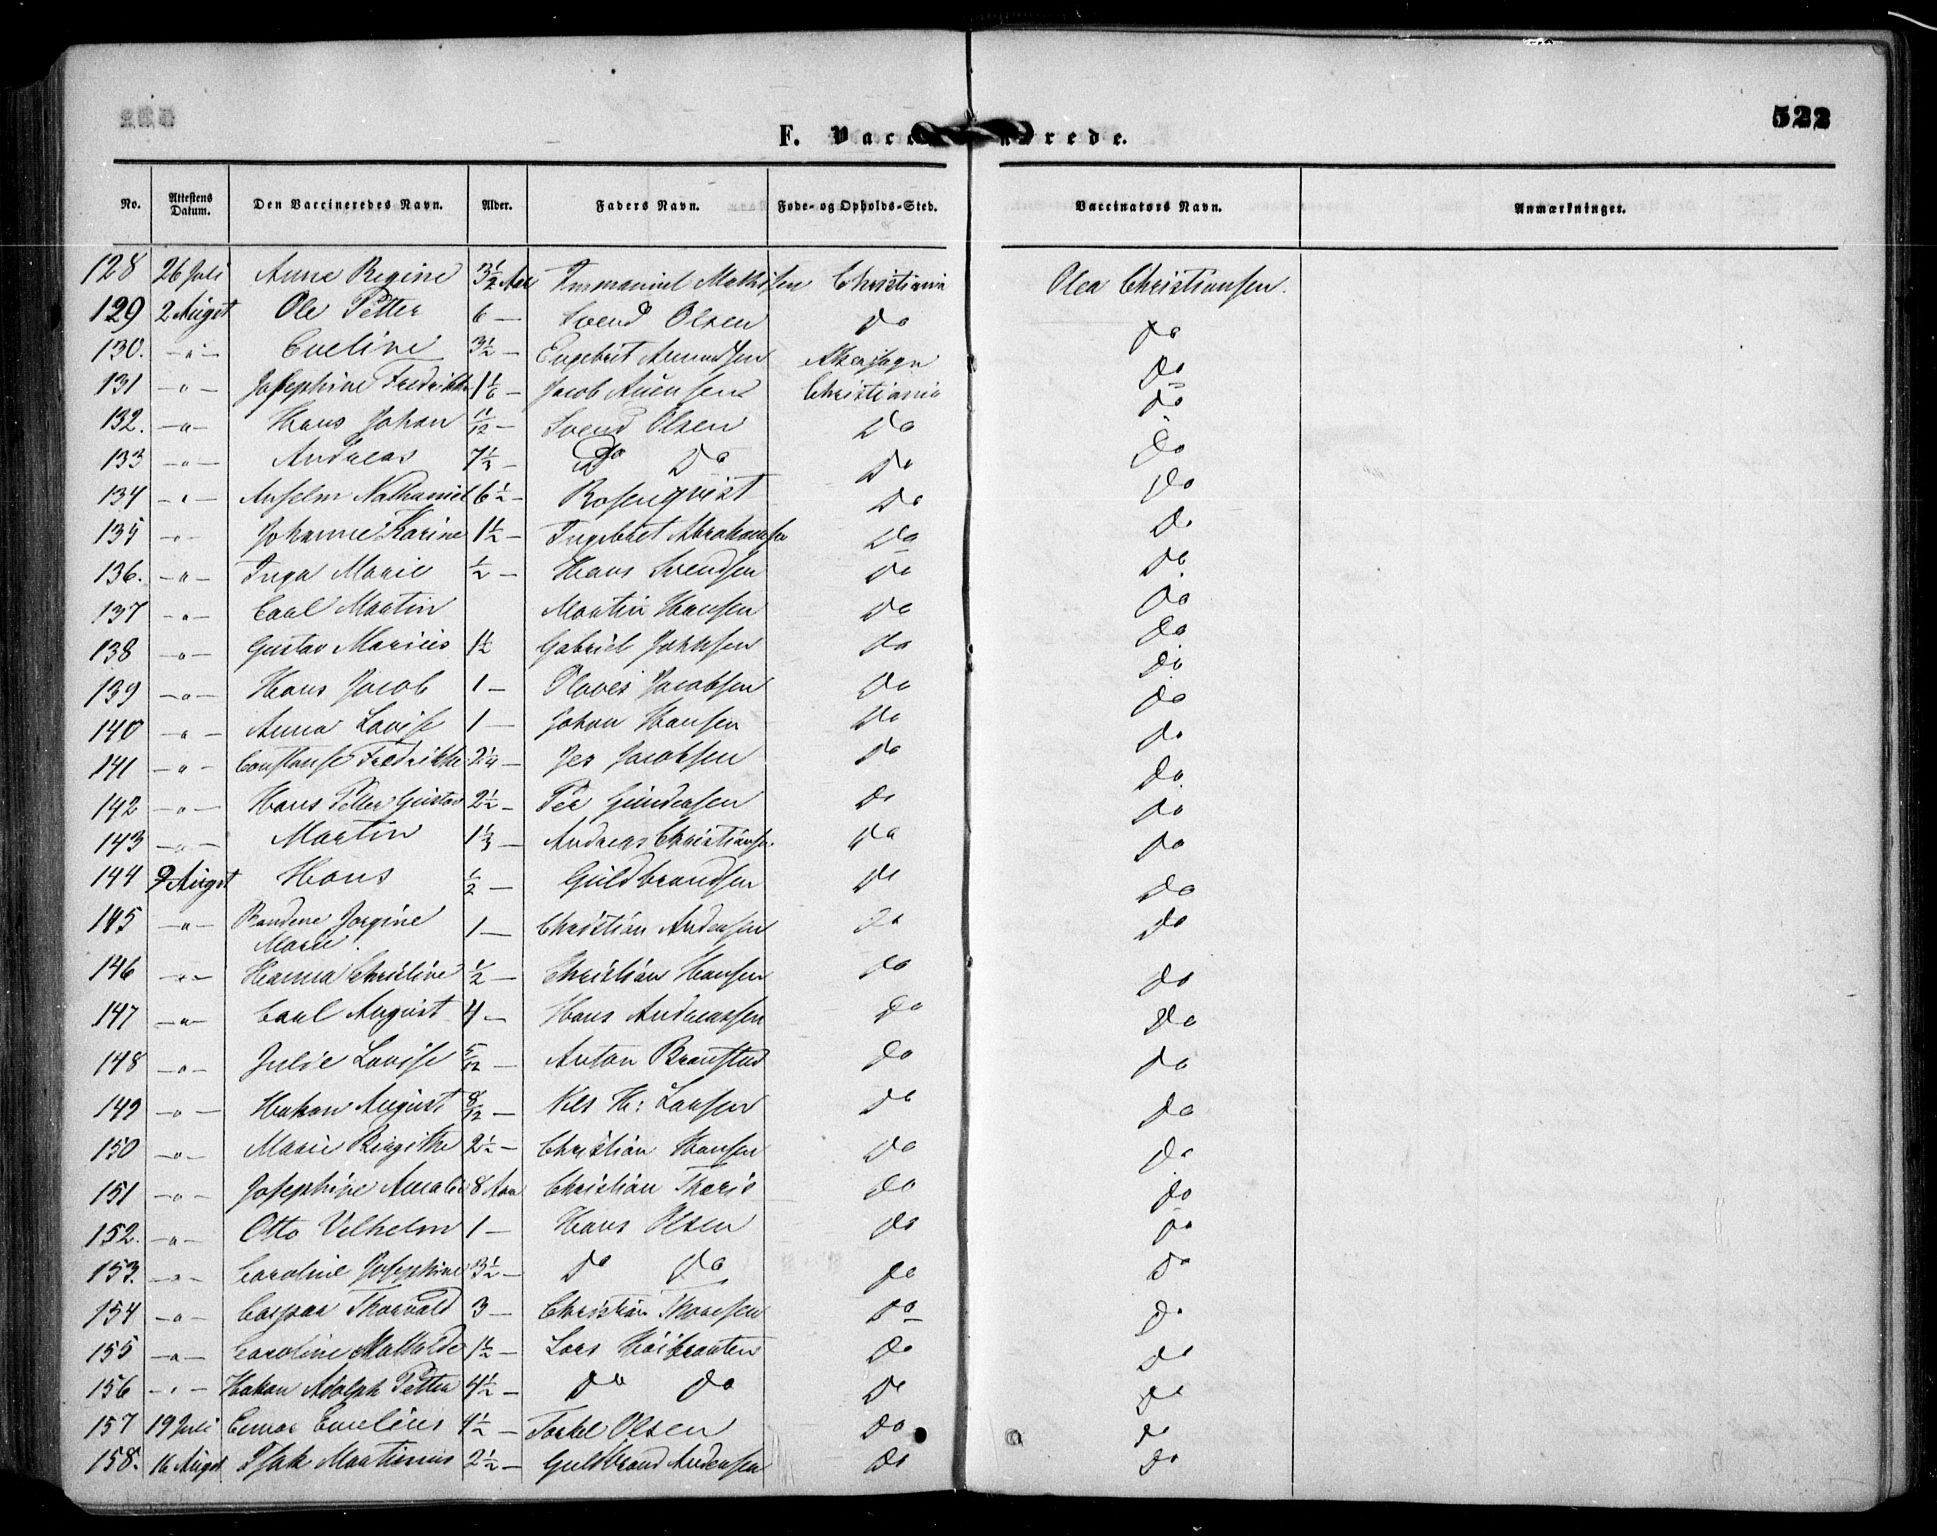 522
F. Vaccinerede.
No. Attestens Datum. Den Vaccineredes Navn. Alder. Faders Navn. Føde- og Opholds-Sted. Vaccinators Navn. Anmærkninger.
128 26 Juli Anne Regine 3½ Aar Immanuel Mathisen Christiania Olea Christiansen.
129 2 August Ole Petter 6 — Svend Olsen Do Do
130. —"— Eveline 3½ — Engebret Amundsen Akersogn Do
131 —"— Josephine Fredrikke 1⅙ — Jacob Christiania Do
132. —"— Hans Johan 11/12 — Svend Olsen Do Do
133 —"— Andreas 7½ — Do Do Do Do
134 —"— Anselm Nathaniel 6½ — Rosenqvist Do Do
135 —"— Johanne Karine 1½ — Ingebret Abrahamsen Do Do
136. —"— Inga Marie ½ — Hans Svendsen Do Do
137 —"— Carl Martin Martin Hansen Do Do
138 —"— Gustav Marius 1½ Gabriel Johnsen Do Do
139 —"— Hans Jacob 1 — Olaves Jacobsen Do Do
140 —"— Anna Lovise 1 — Johan Hansen Do Do
141 —"— Constanse Fredrikke 2¼ — Jes Jacobsen Do Do
142 —"— Hans Petter Gustav 2½ — Per Gundersen Do Do
143 —"— Martin 1⅓ — Andreas Christiansen Do Do
144 9 August Hans ½ — Guldbrandsen Do Do
145 —"— Jorgine 1 — Christian Andersen Do Do
Marie
146 —"— Hanna Christine ½ — Christian Hansen Do Do
147 —"— Carl August 4 — Hans Andreassen Do Do
148 —"— Julie Lovise 5/12 — Anton Branstad Do Do
149 —"— Hakon August 8/12 — Nels H: Larsen Do Do
150 —"— Marie Birgithe 2½ — Christian Hansen Do Do
151 —"— Josephine Amalie 8 Aar Christian Do Do
152. —"— Otto Vilhelm 1 — Hans Olsen Do Do
153. —"— Caroline Josephine 3½ — Do Do Do Do
154 —"— Caspar Thorvald 3 — Christian Thoresen Do Do
155 —"— Caroline Mathilde 1½ — Lars Høibraaten Do Do
156 —"— Hakon Adolph Petter 4½ — Do Do Do Do
157 19 Juli Einar Emelius 4½ — Torkel Olsen Do Do
158. 16 August Isak Martinius 2½ — Guldbrand Andersen Do Do